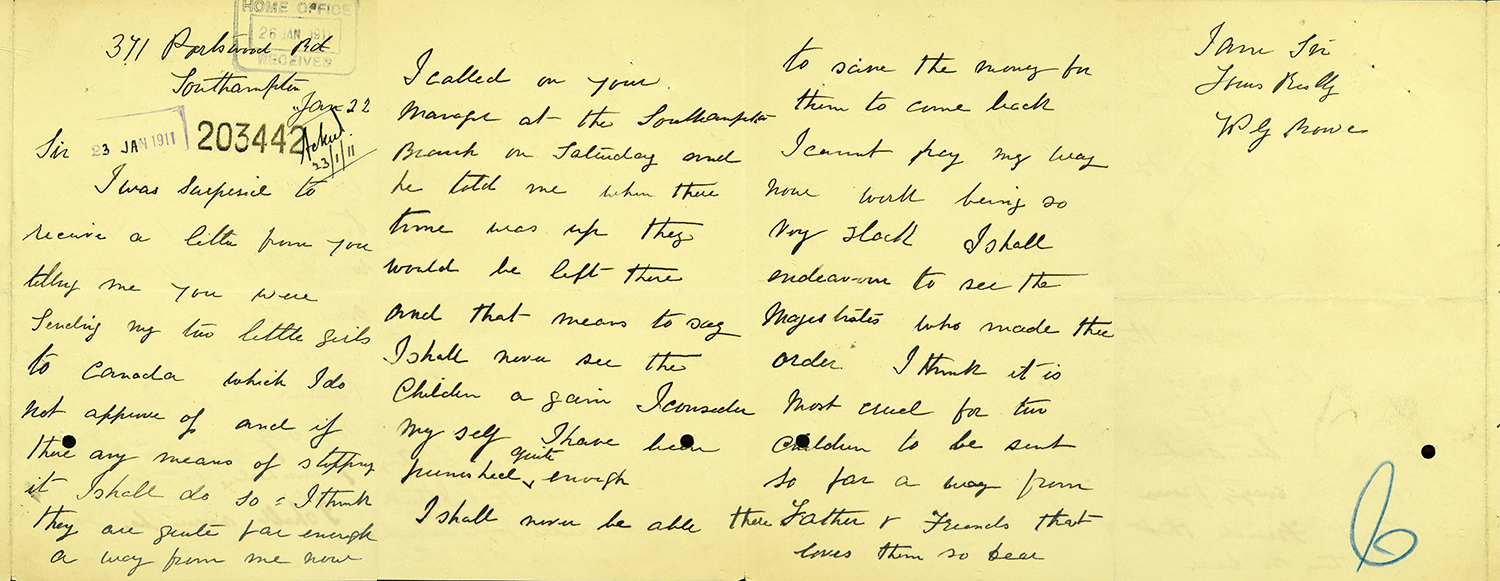 HOME OFFICE
26 JAN 1911
RECEIVED
371 Portswood Rd
Southampton
Jan 22
23 JAN 1911
203442
Ackd.
23/1/11
Sir
I was Surpesid to
receive a letter from you
telling me you were
Sending my two little girls
to Canada which I do
not approve of and if
there any means of stopping
it I shall do so I think
they are quite far enough
a way from me now
I called on your
Manager at the Southampton
Branch on Saturday and
he told me when there
time was up they
would be left there
and that means to say
I shall never see the
Children a gain I consider
my self I have been
punished quite enough
I shall never be able
to save the money for
them to come back
I cannt pay my way
now work being so
very slack I shall
endeavour to see the
Majestrates who made the
order. I think it is
Most cruel for two
children to be sent
so far a way from
there Father & Friends that
loves them so dear
I am Sir
Yours
W G
6